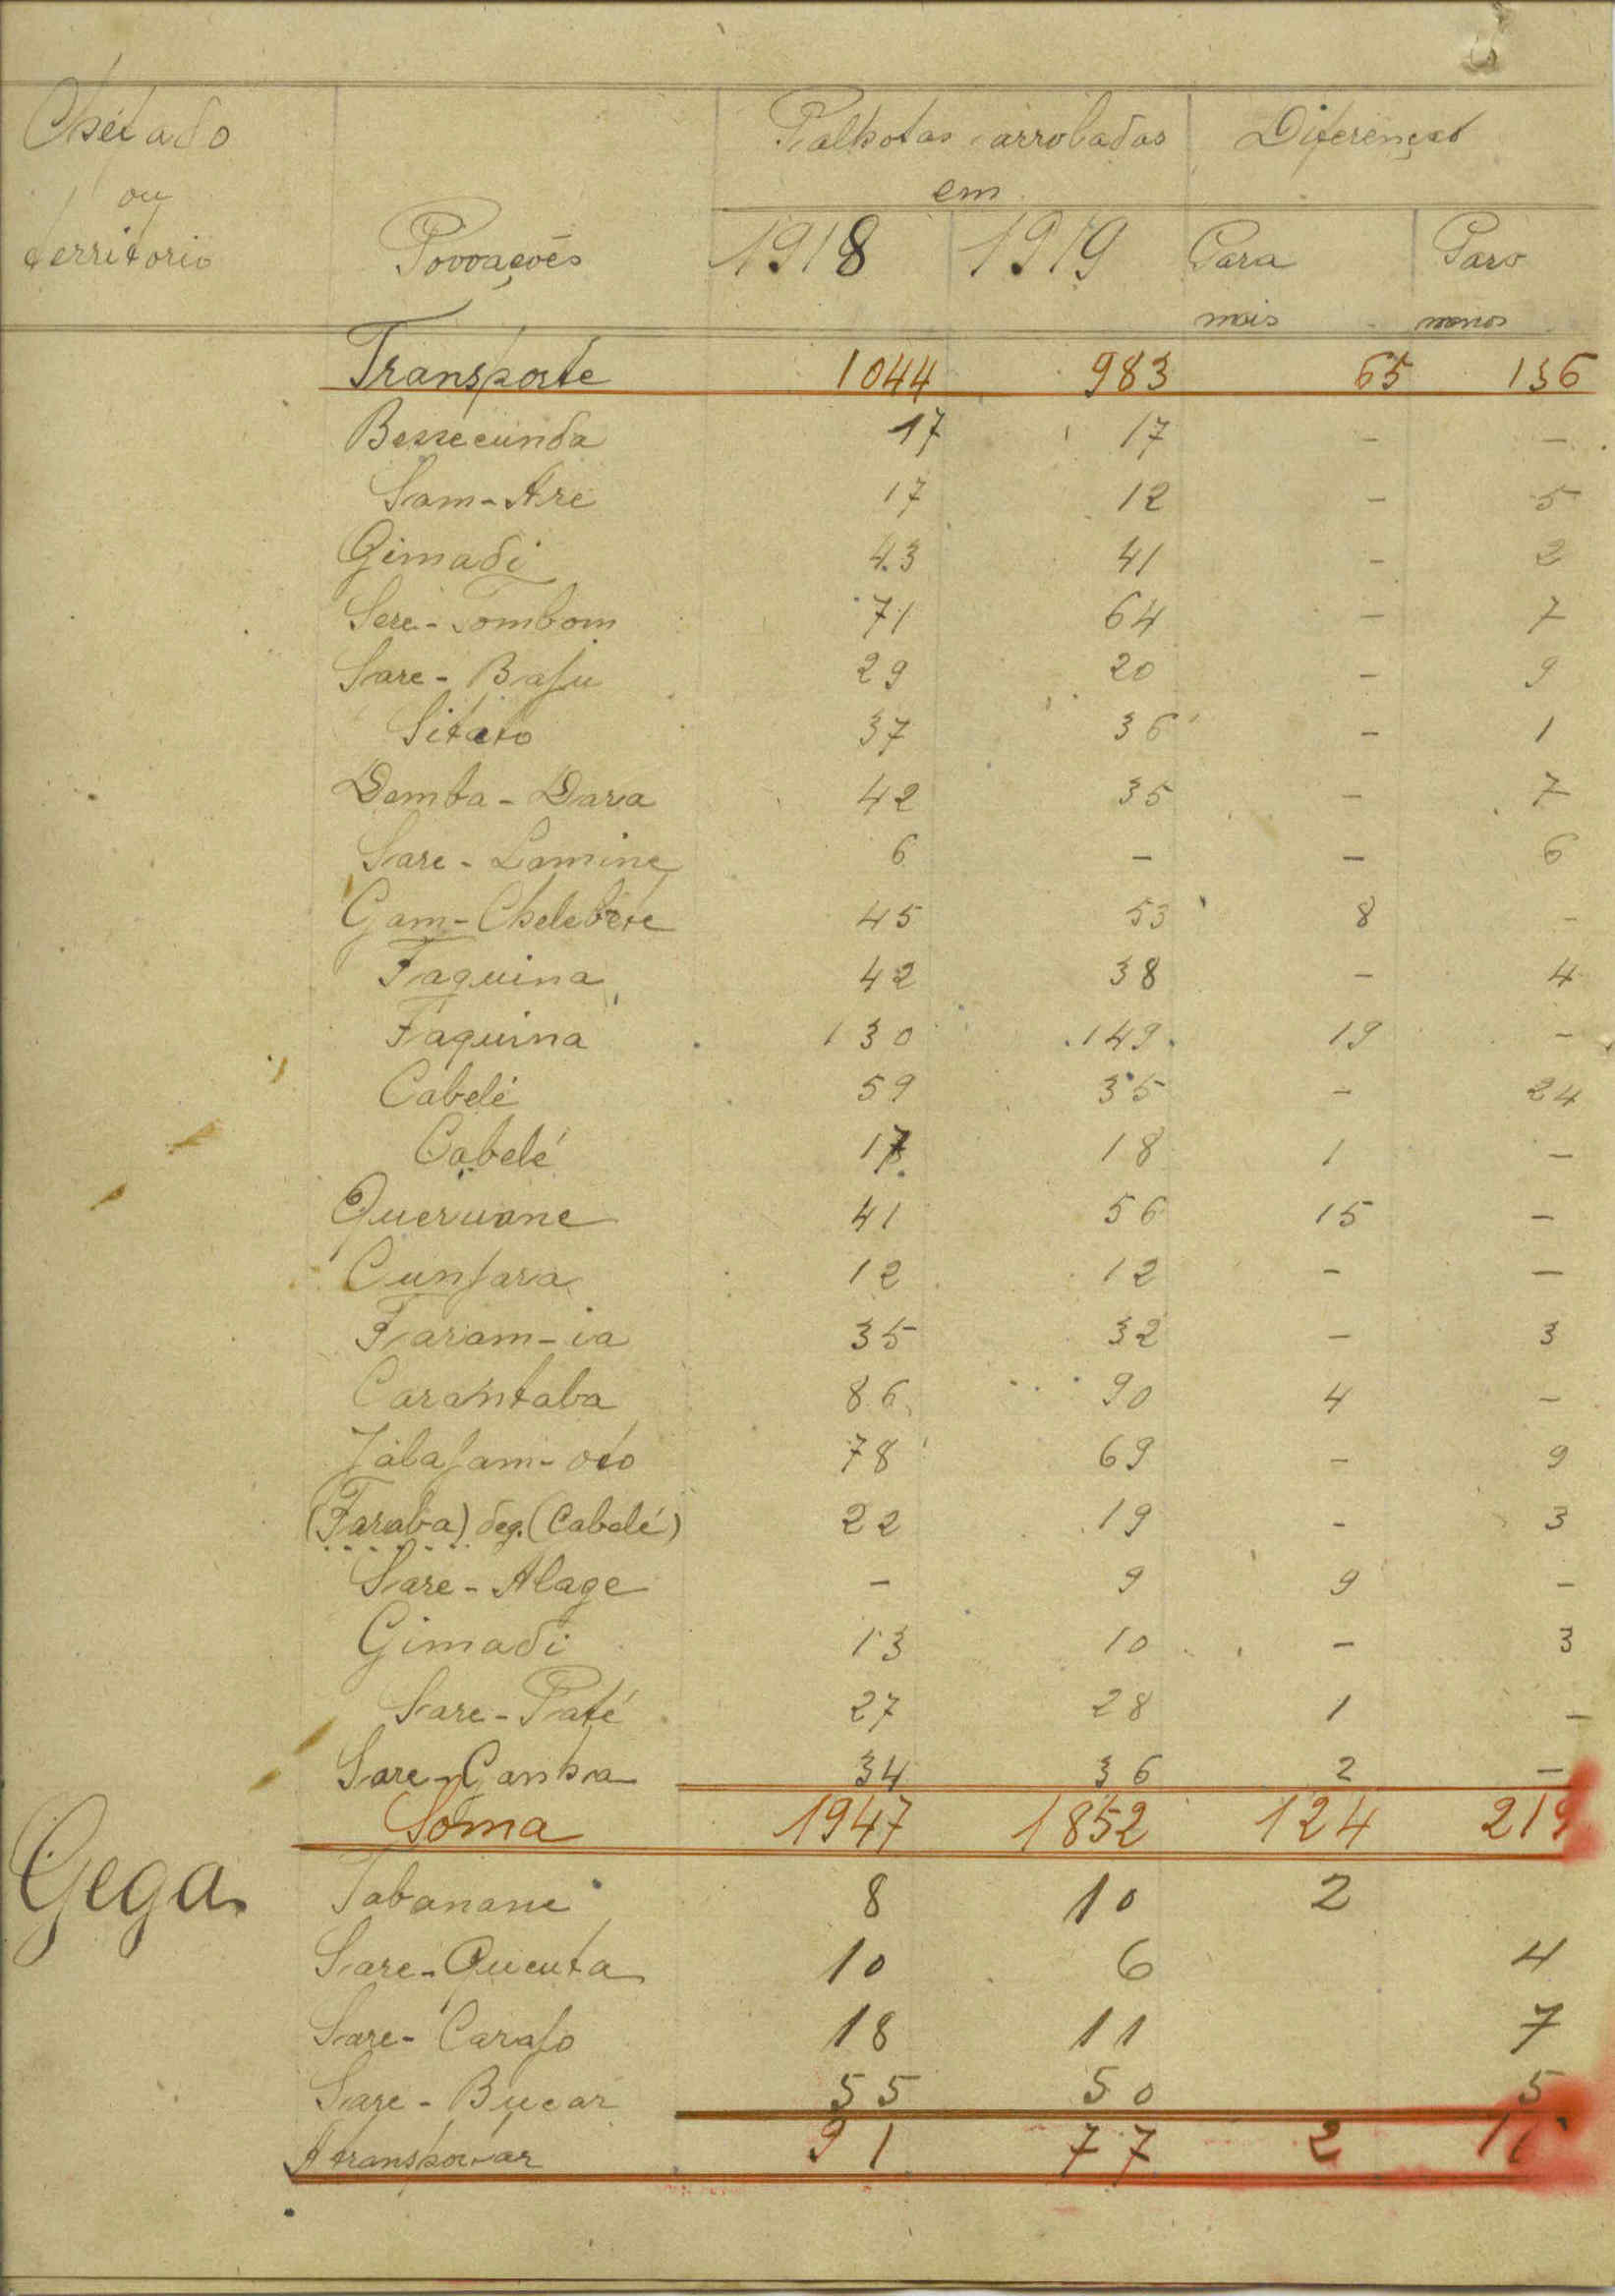 Chefado ou territorio | Povoações | Palhotas arroladas em | Diferenças
1918 | 1919 | Para mais | Para menos
Transporte 1044 983 65 136
Bessecunda 17 17 - -
Sam-Are 17 12 - 5
Gimadi 43 41 - 2
Sere-Tombom 71 64 - 7
Sare-Baju 29 20 - 9
Sitato 37 36 - 1
Demba-Dara 42 35 - 7
Sare-Lamine 6 - - 6
Gam-Chelebete 45 53 8 -
Faquina 42 38 - 4
Faquina 130 149 19 -
Cabelé 59 35 - 24
Cabelé 17 18 1 -
Queruane 41 56 15 -
Cunjara 12 12 - -
Faram-ia 35 32 - 3
Carantaba 86 90 4 -
Jabajam-oto 78 69 - 9
(Faraba) deg. (Cabelé) 22 19 - 3
Sare-Alage - 9 9 -
Gimadi 13 10 - 3
Sare-Paté 27 28 1 -
Sare-Canha 34 36 2 -
Soma 1947 1852 124 219
Gega Tabanane 8 10 2
Sare-Queuta 10 6 4
Sare-Carafo 18 11 7
Sare-Bucar 55 50 5
A transportar 91 77 2 16